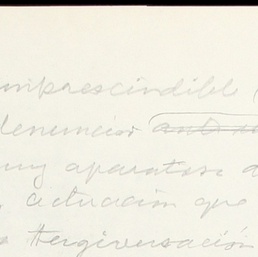 imprescindible (
denuncias
muy aparatosa
actuación que
tergiversación